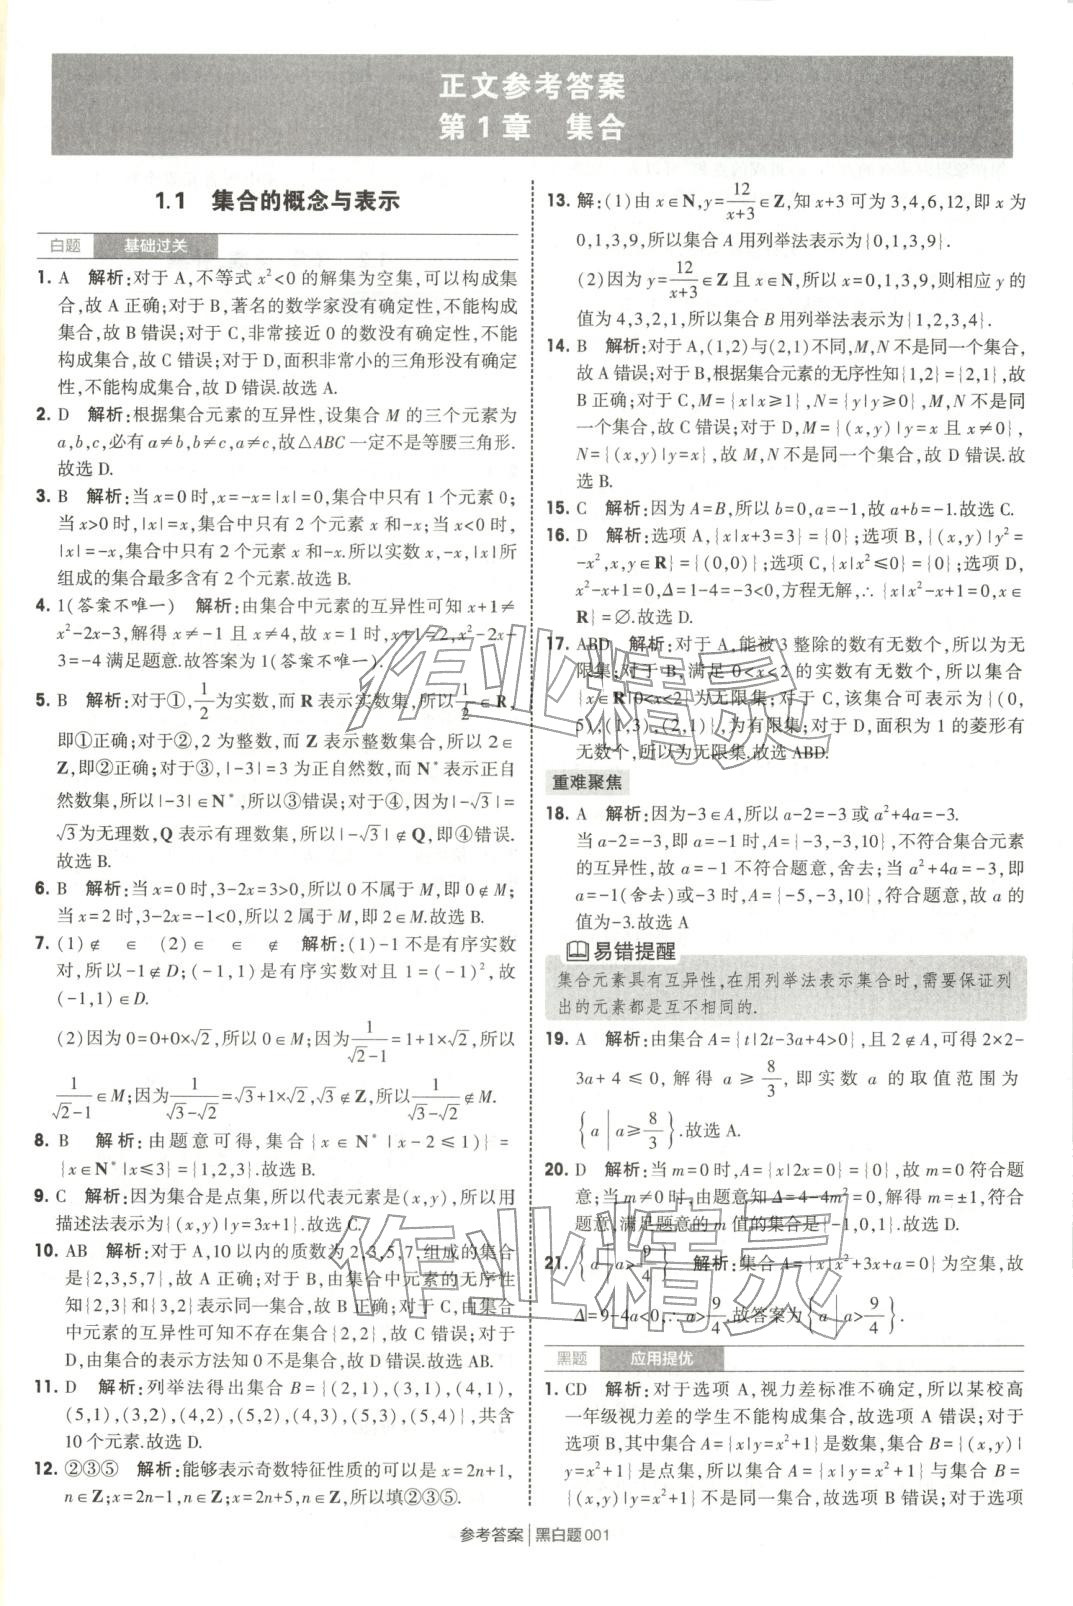 正文参考答案
第1章 集合
1.1 集合的概念与表示
白题 基础过关
1. A 解析:对于 A,不等式 x²<0 的解集为空集,可以构成集
合,故 A 正确;对于 B,著名的数学家没有确定性,不能构成
集合,故 B 错误;对于 C,非常接近 0 的数没有确定性,不能
构成集合,故 C 错误;对于 D,面积非常小的三角形没有确定
性,不能构成集合,故 D 错误.故选 A.
2. D 解析:根据集合元素的互异性,设集合 M 的三个元素为
a,b,c,必有 a≠b,b≠c,a≠c,故△ABC 一定不是等腰三角形.
故选 D.
3. B 解析:当 x=0 时,x=-x=|x|=0,集合中只有 1 个元素 0;
当 x>0 时,|x|=x,集合中只有 2 个元素 x 和-x;当 x<0 时,
|x|=-x,集合中只有 2 个元素 x 和-x.所以实数 x,-x,|x|所
组成的集合最多含有 2 个元素.故选 B.
4. 1(答案不唯一) 解析:由集合中元素的互异性可知 x+1≠
x²-2x-3,解得 x≠-1 且 x≠4,故 x=1 时,x+1=2,x²-2x-
3=-4 满足题意.故答案为 1(答案不唯一).
5. B 解析:对于①,1/2为实数,而 R 表示实数集,所以1/2∈R,
即①正确;对于②,2 为整数,而 Z 表示整数集合,所以 2∈
Z,即②正确;对于③,|-3|=3 为正自然数,而 N* 表示正自
然数集,所以|-3|∈N*,所以③错误;对于④,因为|-√3|=
√3为无理数,Q 表示有理数集,所以|-√3|∉Q,即④错误.
故选 B.
6. B 解析:当 x=0 时,3-2x=3>0,所以 0 不属于 M,即 0∉M;
当 x=2 时,3-2x=-1<0,所以 2 属于 M,即 2∈M.故选 B.
7. (1)∉ ∈ (2)∈ ∈ ∉ 解析:(1)-1 不是有序实数
对,所以-1∉D;(-1,1)是有序实数对,且 1=(-1)²,故
(-1,1)∈D.
(2)因为 0=0+0×√2,所以 0∈M;因为1/(√2-1)=1+1×√2,所以
1/(√2-1)∈M;因为1/(√3-√2)=√3+1×√2,√3∉Z,所以1/(√3-√2)∉M.
8. B 解析:由题意可得,集合{x∈N*|x-2≤1)}=
{x∈N*|x≤3}={1,2,3}.故选 B.
9. C 解析:因为集合是点集,所以代表元素是(x,y),所以用
描述法表示为{(x,y)|y=3x+1}.故选 C.
10. AB 解析:对于 A,10 以内的质数为 2,3,5,7,组成的集合
是{2,3,5,7},故 A 正确;对于 B,由集合中元素的无序性
知{2,3}和{3,2}表示同一集合,故 B 正确;对于 C,由集合
中元素的互异性可知不存在集合{2,2},故 C 错误;对于
D,由集合的表示方法知 0 不是集合,故 D 错误.故选 AB.
11. D 解析:列举法得出集合 B={(2,1),(3,1),(4,1),
(5,1),(3,2),(4,2),(5,2),(4,3),(5,3),(5,4)},共含
10 个元素.故选 D.
12. ②③⑤ 解析:能够表示奇数特征性质的可以是 x=2n+1,
n∈Z;x=2n-1,n∈Z;x=2n+5,n∈Z,所以填②③⑤.
13. 解:(1)由 x∈N,y=12/(x+3)∈Z,知 x+3 可为 3,4,6,12,即 x 为
0,1,3,9,所以集合 A 用列举法表示为{0,1,3,9}.
(2)因为 y=12/(x+3)∈Z 且 x∈N,所以 x=0,1,3,9,则相应 y 的
值为 4,3,2,1,所以集合 B 用列举法表示为{1,2,3,4}.
14. B 解析:对于 A,(1,2)与(2,1)不同,M,N 不是同一个集合,
故 A 错误;对于 B,根据集合元素的无序性知{1,2}={2,1},故
B 正确;对于 C,M={x|x≥1},N={y|y≥0},M,N 不是同
一个集合,故 C 错误;对于 D,M={(x,y)|y=x 且 x≠0},
N={(x,y)|y=x},故 M,N 不是同一个集合,故 D 错误.故
选 B.
15. C 解析:因为 A=B,所以 b=0,a=-1,故 a+b=-1.故选 C.
16. D 解析:选项 A,{x|x+3=3}={0};选项 B,{(x,y)|y²=
-x²,x,y∈R}={(0,0)};选项 C,{x|x²≤0}={0};选项 D,
x²-x+1=0,Δ=1-4=-3<0,方程无解,∴{x|x²-x+1=0,x∈
R}=∅.故选 D.
17. ABD 解析:对于 A,能被 3 整除的数有无数个,所以为无
限集;对于 B,满足 0<x<2 的实数有无数个,所以集合
{x∈R|0<x<2}为无限集;对于 C,该集合可表示为{(0,
5),(1,3),(2,1)},为有限集;对于 D,面积为 1 的菱形有
无数个,所以为无限集.故选 ABD.
重难聚焦
18. A 解析:因为-3∈A,所以 a-2=-3 或 a²+4a=-3.
当 a-2=-3,即 a=-1 时,A={-3,-3,10},不符合集合元素
的互异性,故 a=-1 不符合题意,舍去;当 a²+4a=-3,即
a=-1(舍去)或-3 时,A={-5,-3,10},符合题意,故 a 的
值为-3.故选 A
易错提醒
集合元素具有互异性,在用列举法表示集合时,需要保证列
出的元素都是互不相同的.
19. A 解析:由集合 A={t|2t-3a+4>0},且 2∉A,可得 2×2-
3a+4≤0,解得 a≥8/3,即实数 a 的取值范围为
{a|a≥8/3}.故选 A.
20. D 解析:当 m=0 时,A={x|2x=0}={0},故 m=0 符合题
意;当 m≠0 时,由题意知 Δ=4-4m²=0,解得 m=±1,符合
题意,满足题意的 m 值的集合是{-1,0,1}.故选 D.
21. {a|a>9/4} 解析:集合 A={x|x²+3x+a=0}为空集,故
Δ=9-4a<0,∴a>9/4.故答案为{a|a>9/4}.
黑题 应用提优
1. CD 解析:对于选项 A,视力差标准不确定,所以某校高
一年级视力差的学生不能构成集合,故选项 A 错误;对于
选项 B,其中集合 A={x|y=x²+1}是数集,集合 B={(x,y)|
y=x²+1}是点集,所以集合 A={x|y=x²+1}与集合 B=
{(x,y)|y=x²+1}不是同一集合,故选项 B 错误;对于选项
参考答案 黑白题 001
作业精灵
作业精灵